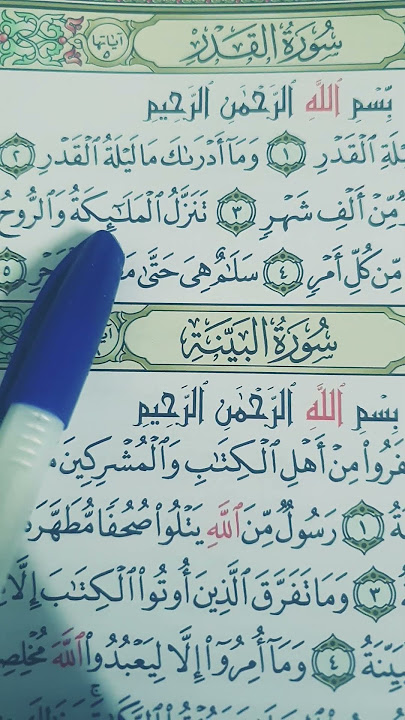 سُورَةُ القَدْرِ آيَاتُهَا ٥
بِسْمِ ٱللَّهِ ٱلرَّحْمَٰنِ ٱلرَّحِيمِ
ٱلْقَدْرِ ١ وَمَآ أَدْرَىٰكَ مَا لَيْلَةُ ٱلْقَدْرِ ٢
مِّنْ أَلْفِ شَهْرٍ ٣ تَنَزَّلُ ٱلْمَلَٰٓئِكَةُ وَٱلرُّوحُ
مِّن كُلِّ أَمْرٍ ٤ سَلَٰمٌ هِىَ حَتَّىٰ ٥
سُورَةُ البَيِّنَةِ
بِسْمِ ٱللَّهِ ٱلرَّحْمَٰنِ ٱلرَّحِيمِ
مِنْ أَهْلِ ٱلْكِتَٰبِ وَٱلْمُشْرِكِينَ
١ رَسُولٌ مِّنَ ٱللَّهِ يَتْلُوا۟ صُحُفًا مُّطَهَّرَةً
٣ وَمَا تَفَرَّقَ ٱلَّذِينَ أُوتُوا۟ ٱلْكِتَٰبَ إِلَّا
٤ وَمَآ أُمِرُوٓا۟ إِلَّا لِيَعْبُدُوا۟ ٱللَّهَ